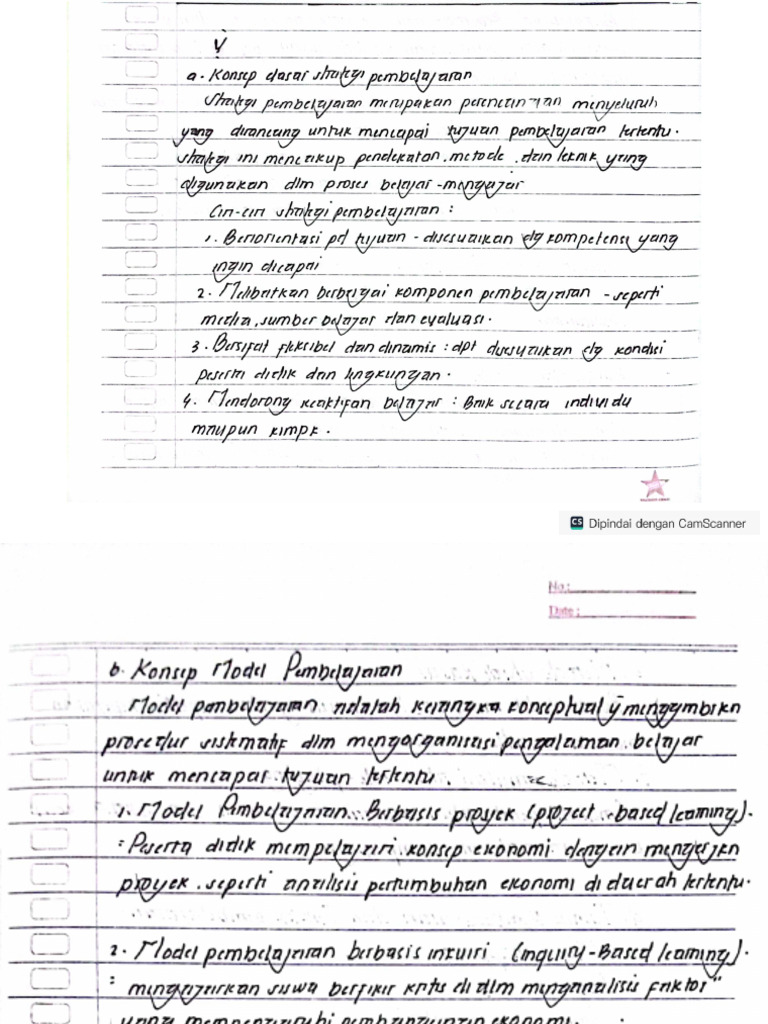 V
a. Konsep dasar strategi pembelajaran
Strategi pembelajaran merupakan perencanaan menyeluruh
yang dirancang untuk mencapai tujuan pembelajaran tertentu.
strategi ini mencakup pendekatan, metode, dan teknik yang
digunakan dlm proses belajar-mengajar
Ciri-ciri strategi pembelajaran :
1. Berorientasi pd tujuan - disesuaikan dg kompetensi yang
ingin dicapai
2. Melibatkan berbagai komponen pembelajaran - seperti
media, sumber belajar dan evaluasi.
3. Bersifat fleksibel dan dinamis : dpt disesuaikan dg kondisi
peserta didik dan lingkungan.
4. Mendorong keaktifan belajar : Baik secara individu
maupun klmpk.
CS Dipindai dengan CamScanner
No :
Date :
b. Konsep Model Pembelajaran
Model pembelajaran adalah kerangka konseptual ȳ menggmbrkn
prosedur sistematif dlm mengorganisasi pengalaman belajar
untuk mencapai tujuan tertentu.
1. Model Pembelajaran Berbasis proyek (project-based learning).
: Peserta didik mempelajari konsep ekonomi dengan mengerjkn
proyek, seperti analisis pertumbuhan ekonomi di daerah tertentu.
2. Model pembelajaran berbasis inkuiri (Inquiry-Based learning).
: mengajarkan siswa berfikir kritis di dlm menganalisis faktor"
yang mempengaruhi pembangunan ekonomi.